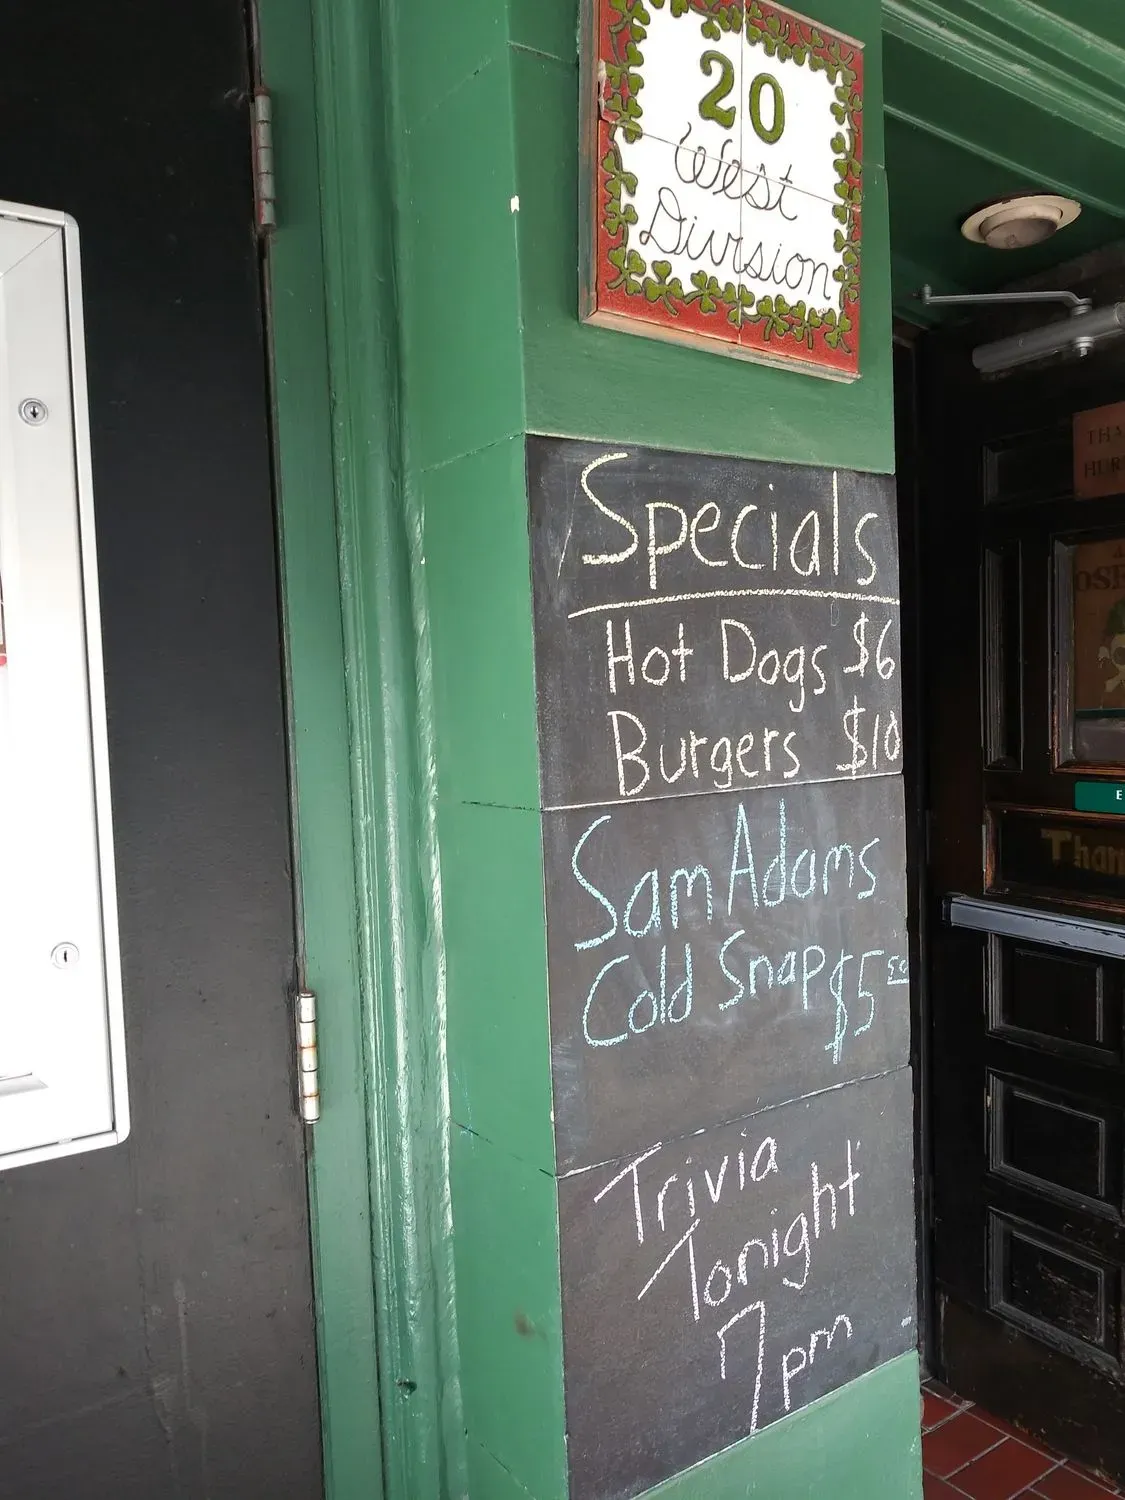 20
West
Division
Specials
Hot Dogs $6
Burgers $10
Sam Adams
Cold Snap $5
Trivia
Tonight
7pm